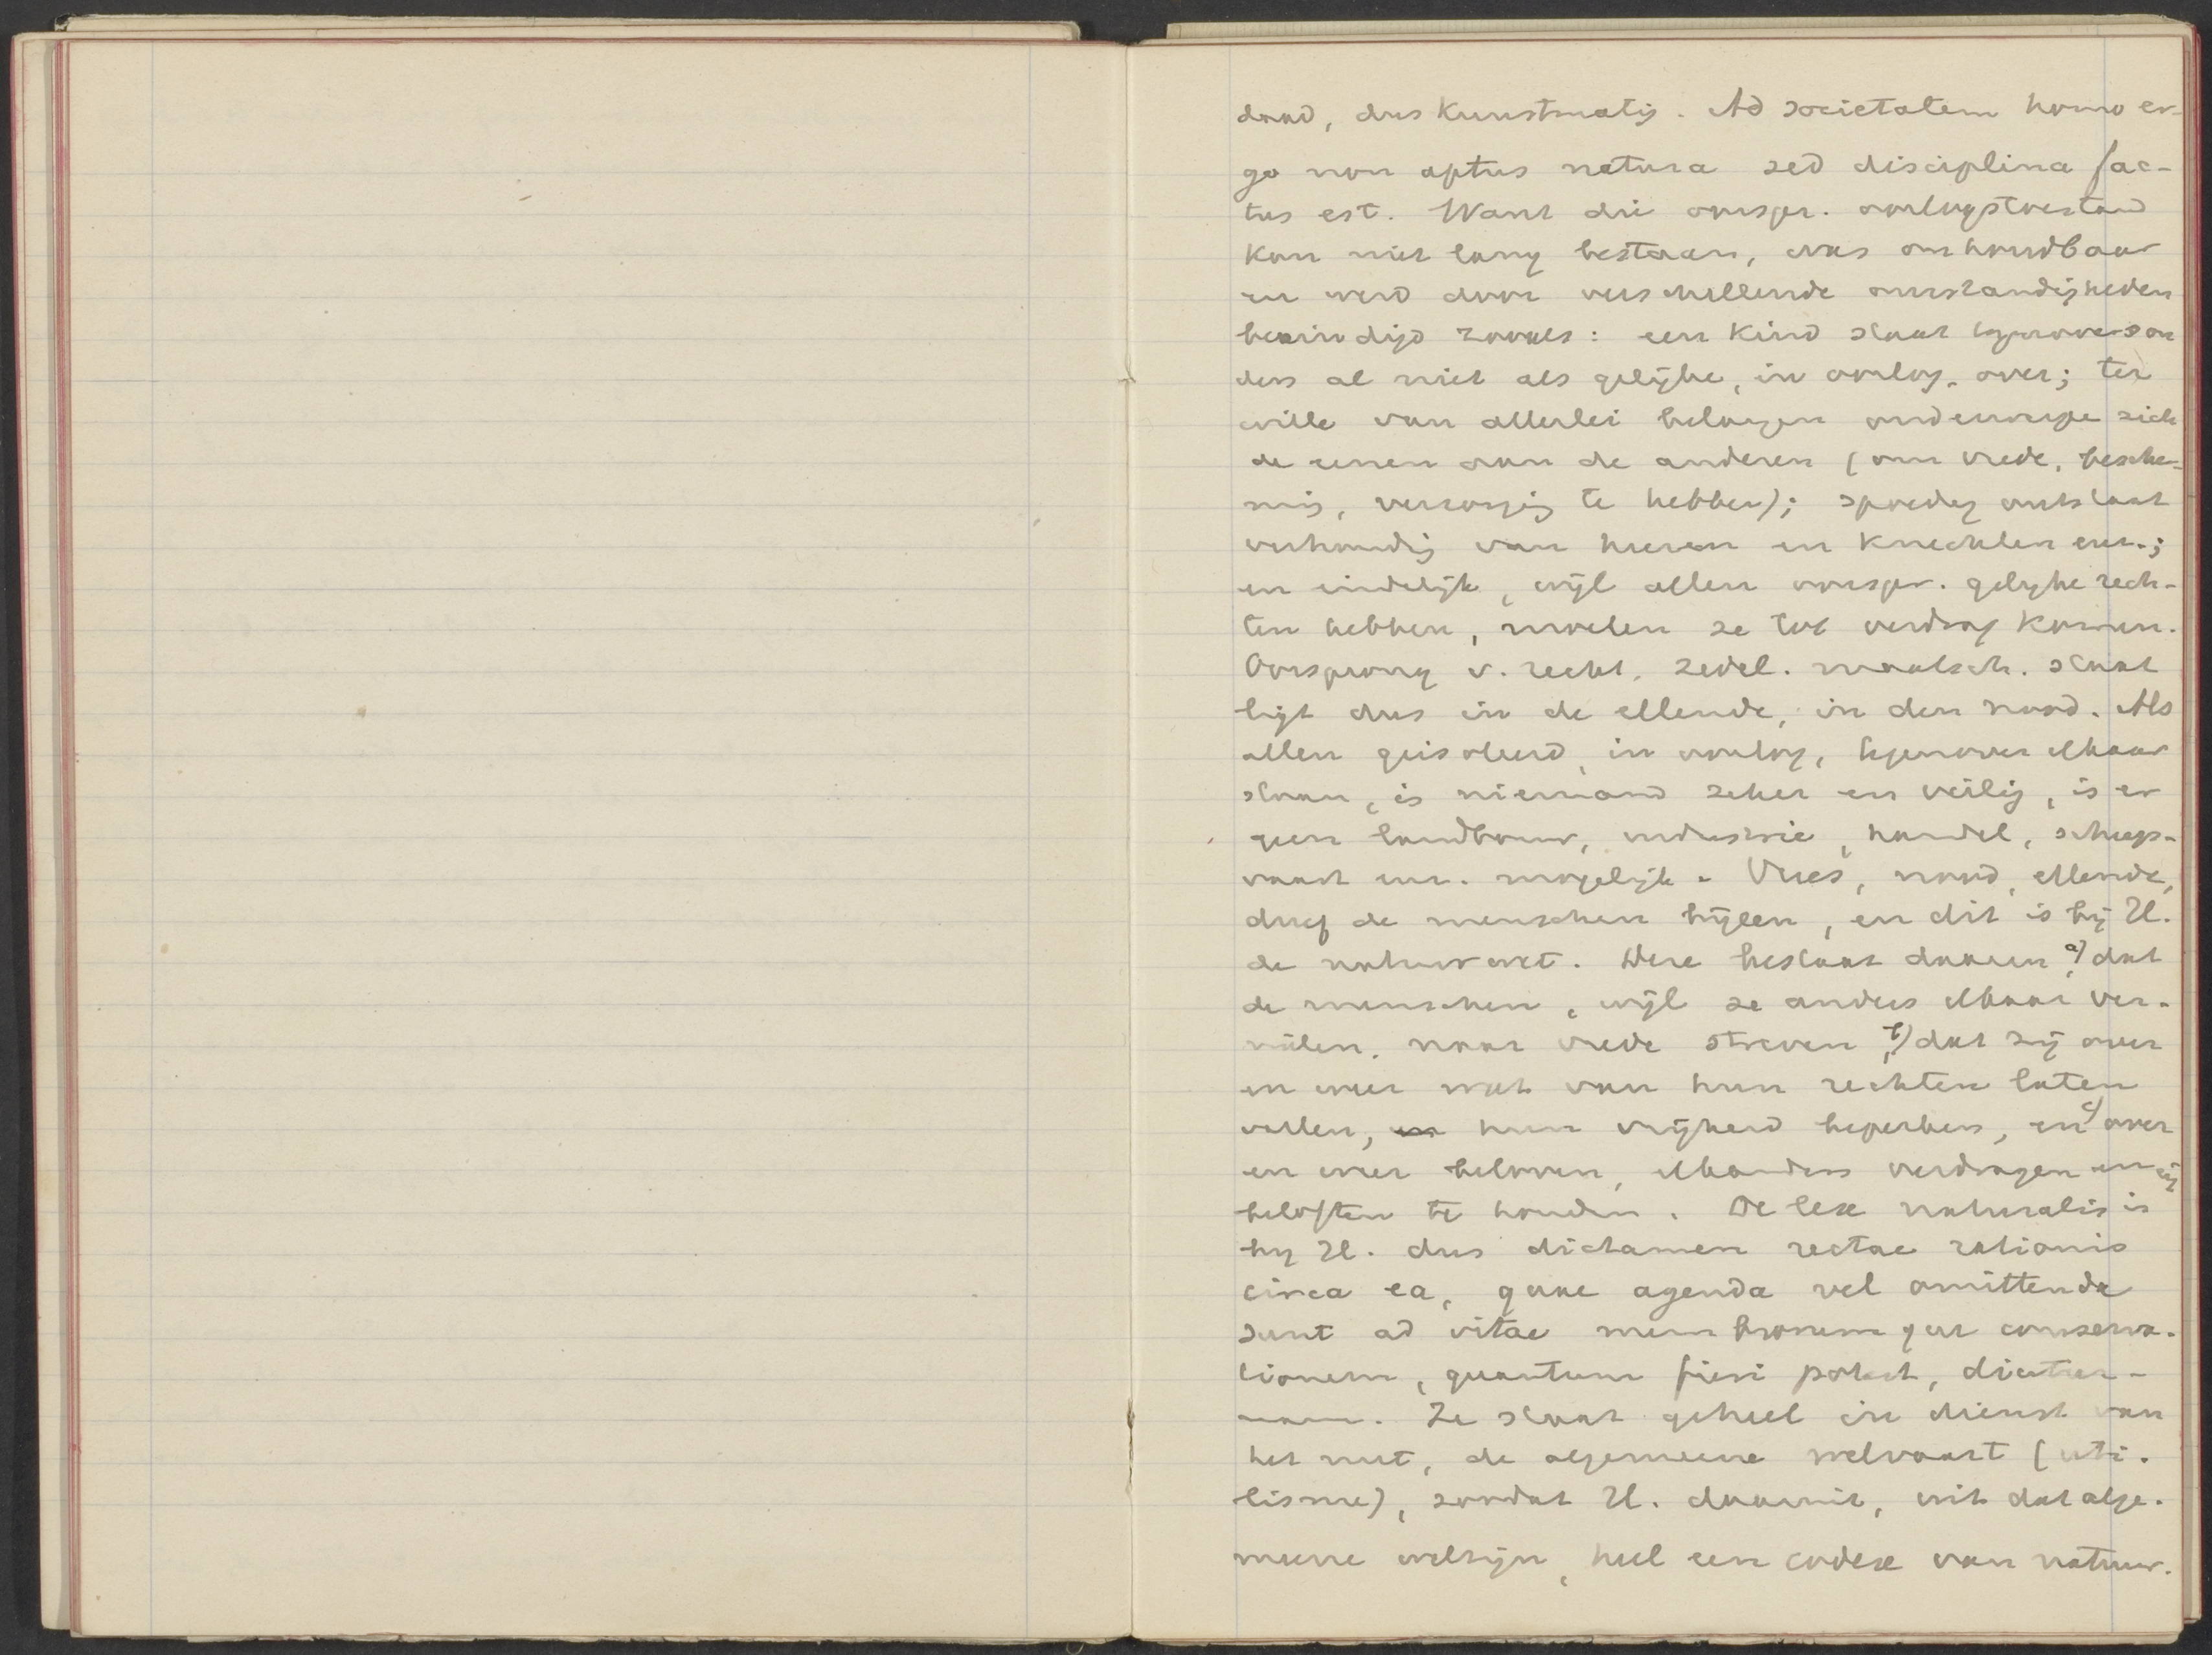 daad, dus kunstmatig. Ad societatem homo er-
go non aptus natura sed disciplina fac-
tus est. Want die oorspr. oorlogstoestand
kon niet lang bestaan, was onhoudbaar
en werd door verschillende omstandigheden
beëindigd zooals: een kind staat tegenover ou
ders al niet als gelijke, in oorlog, over; ter
wille van allerlei belangen onderwerpe zich
de eenen aan de anderen (om vrede, besche-
mig, verzorgig te hebben); spoedig ontstaat
verhoudig van heeren en knechten enz.;
en eindelijk, wijl allen oorspr. gelijke rech-
ten hebben, moeten ze tot verdrag komen.
Oorsprong v. recht, zedel. maatsch. staat
ligt dus in de ellende, in den nood. Als
allen geisoleerd, in oorlog, tegenover elkaar
staan, is niemand zeker en veilig, is er
geen landbouw, industrie, handel, scheep-
vaart enz. mogelijk. Vrees, nood, ellende,
dreef de menschen bijeen, en dit is bij H.
de natuurwet. Deze bestaat daarin a) dat
de menschen, wijl ze anders elkaar ver-
nielen, naar vrede streven, b) dat zij over
en weer wat van hun rechten laten
vallen, hun vrijheid beperken, en c) over
en weer beloven, elkanders verdragen en
beloften te houden. De lex naturalis is
bij H. dus dictamen rectae rationis
circa ea, quae agenda vel omittenda
sunt ad vitae membrorumque conserva-
tionem, quantum fieri potest, diutur-
nam. Ze staat geheel in dienst van
het nut, de algemeene welvaart (uti-
lisme), zoodat H. daaruit, uit dat alge-
meene welzijn, heel een codex van natuur-